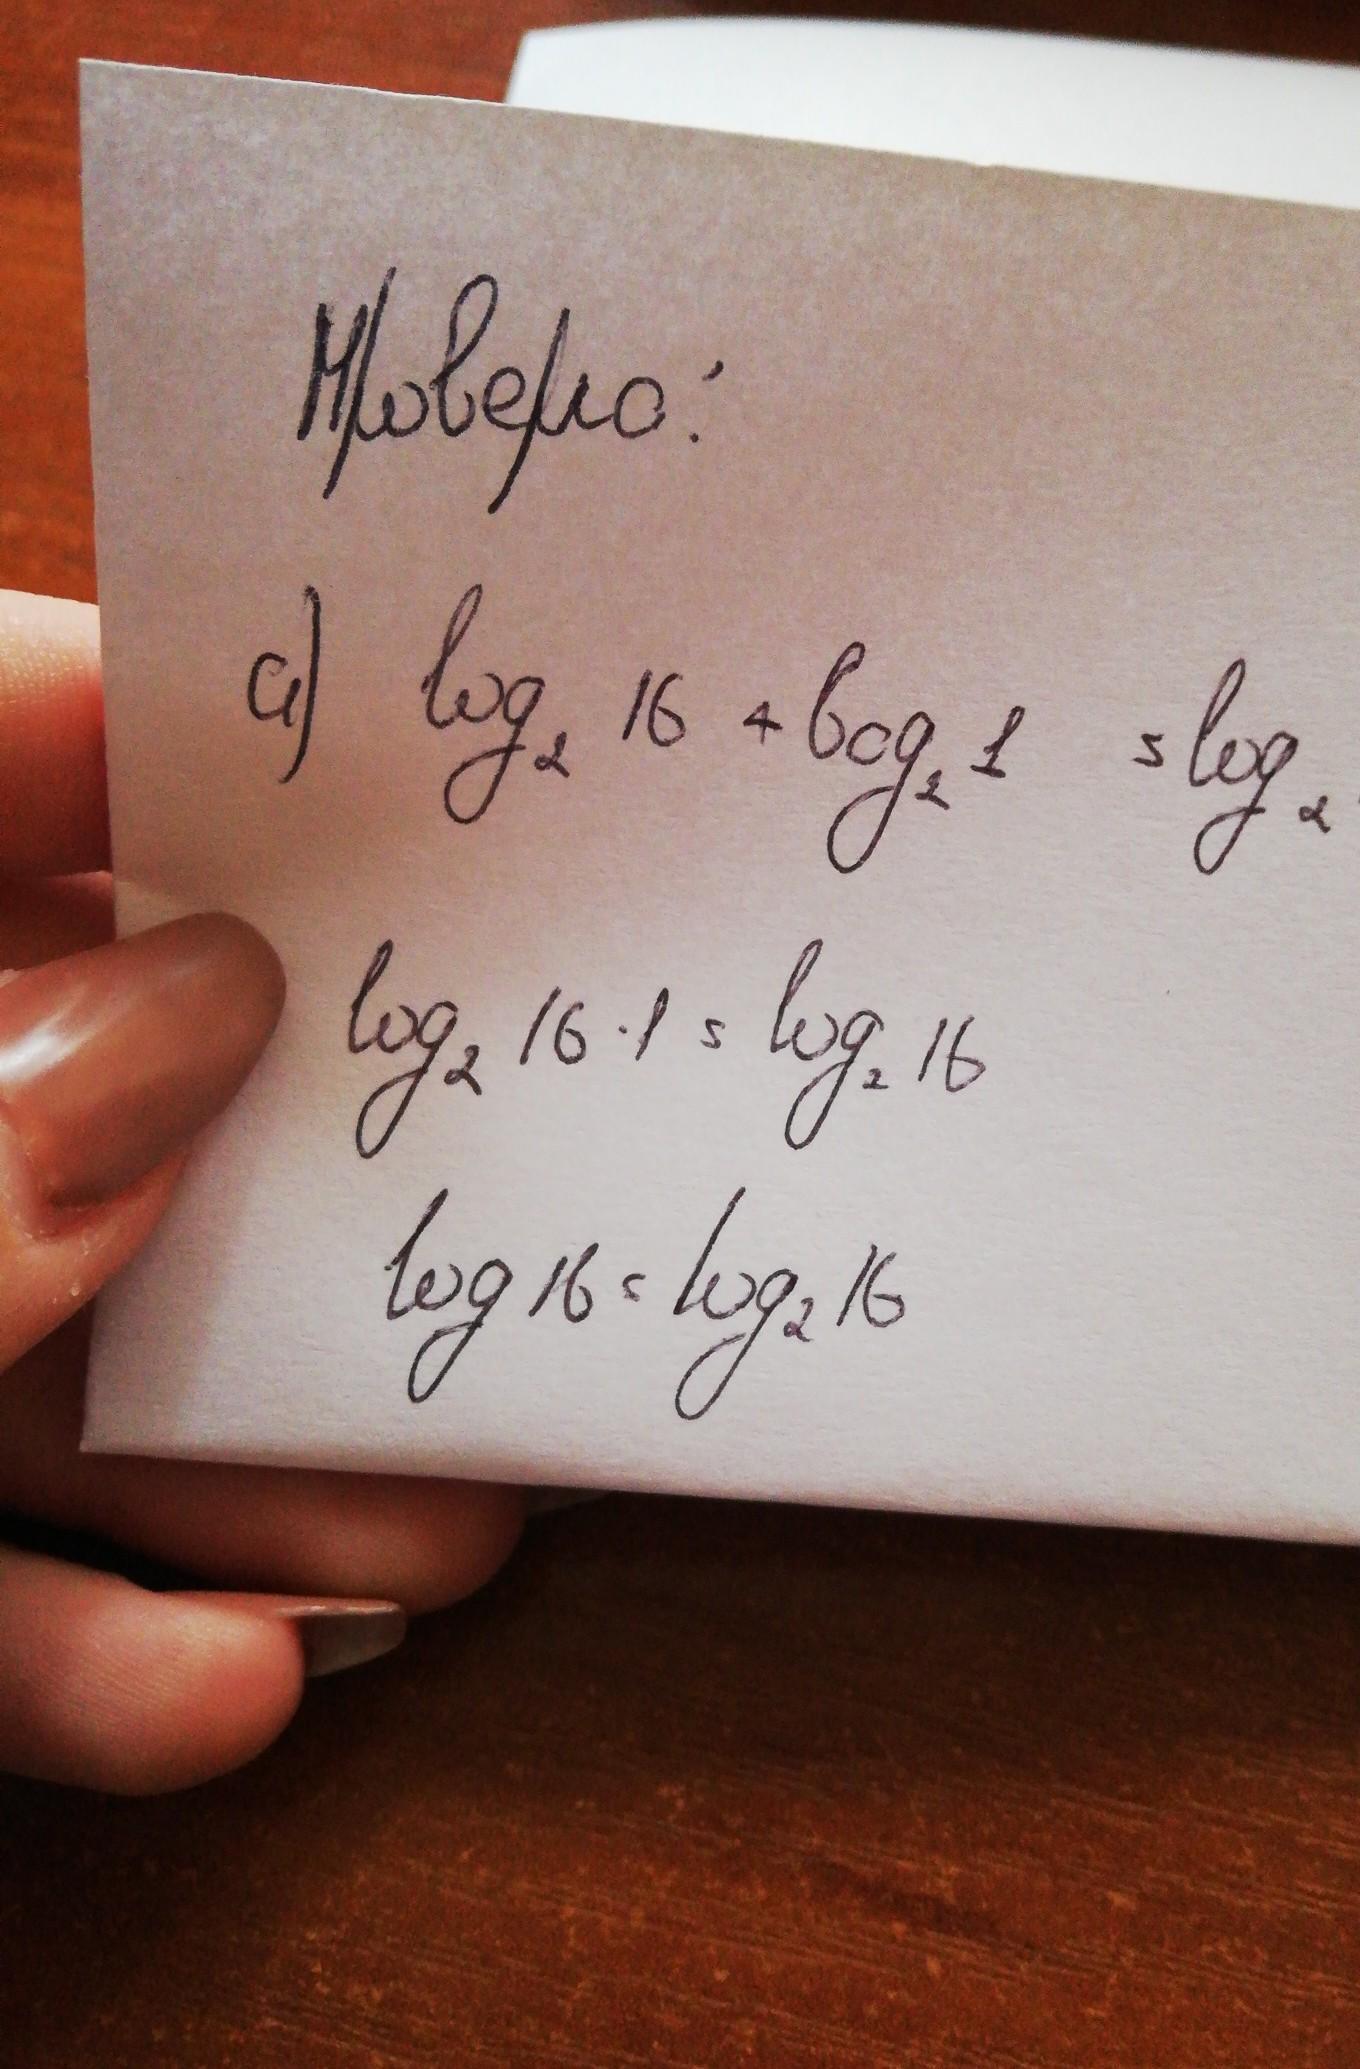 Проверка:
а) log₂ 16 + log₂ 1 = log₂
log₂ 16 · 1 = log₂ 16
log 16 = log₂ 16